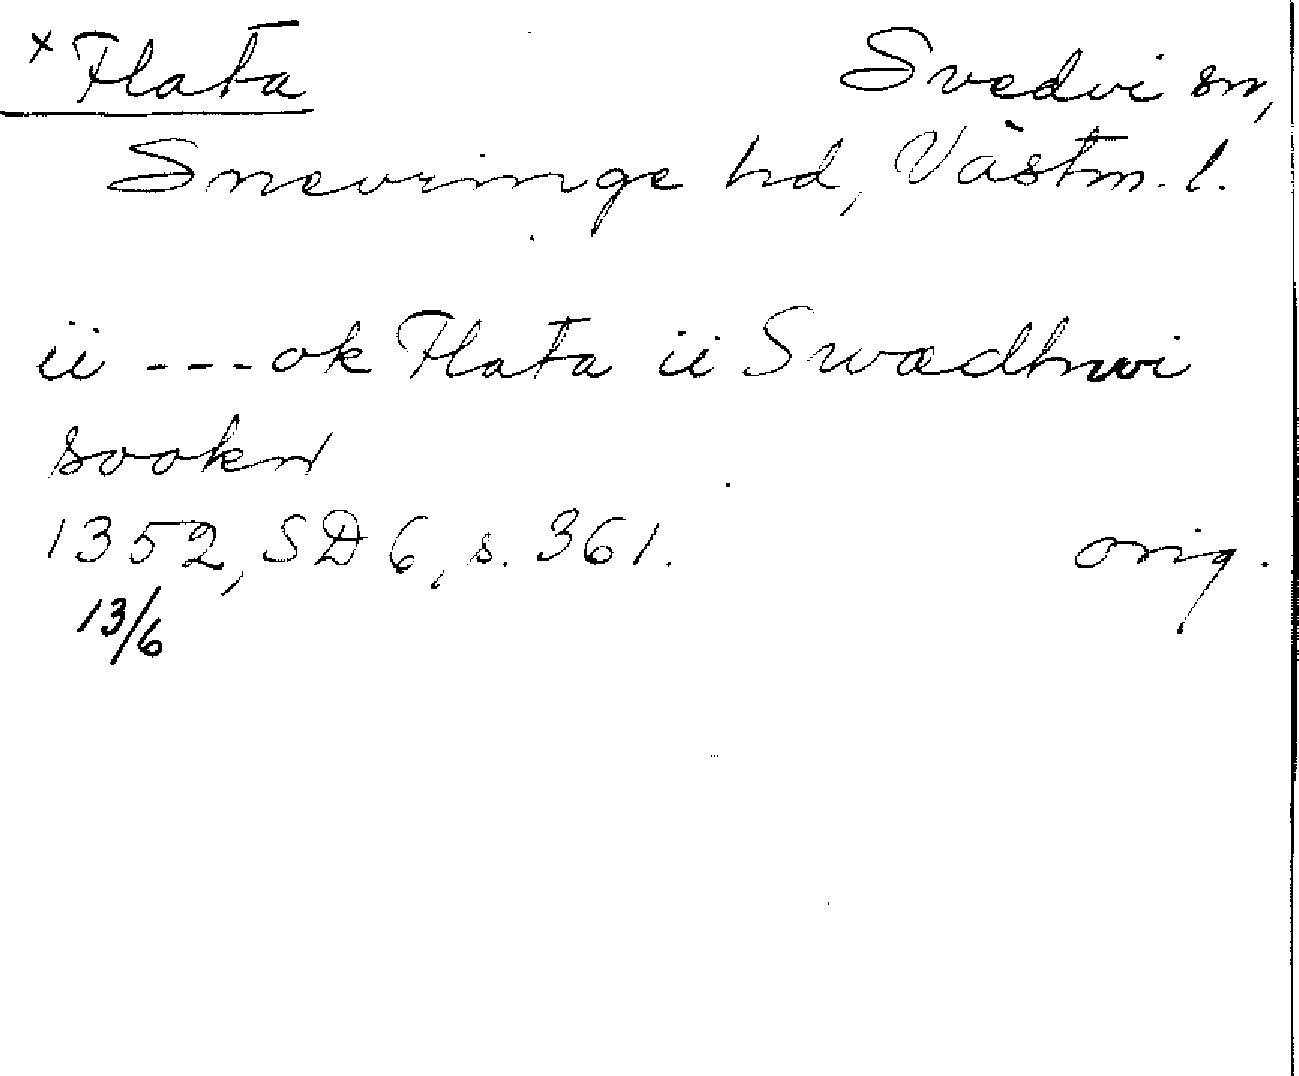 × Flata Svedvi sn,
Snevringe hd, Västm. l.
ii --- ok Flata ii Swædhwi
sookn
1352, SD 6, s. 361. orig.
13/6